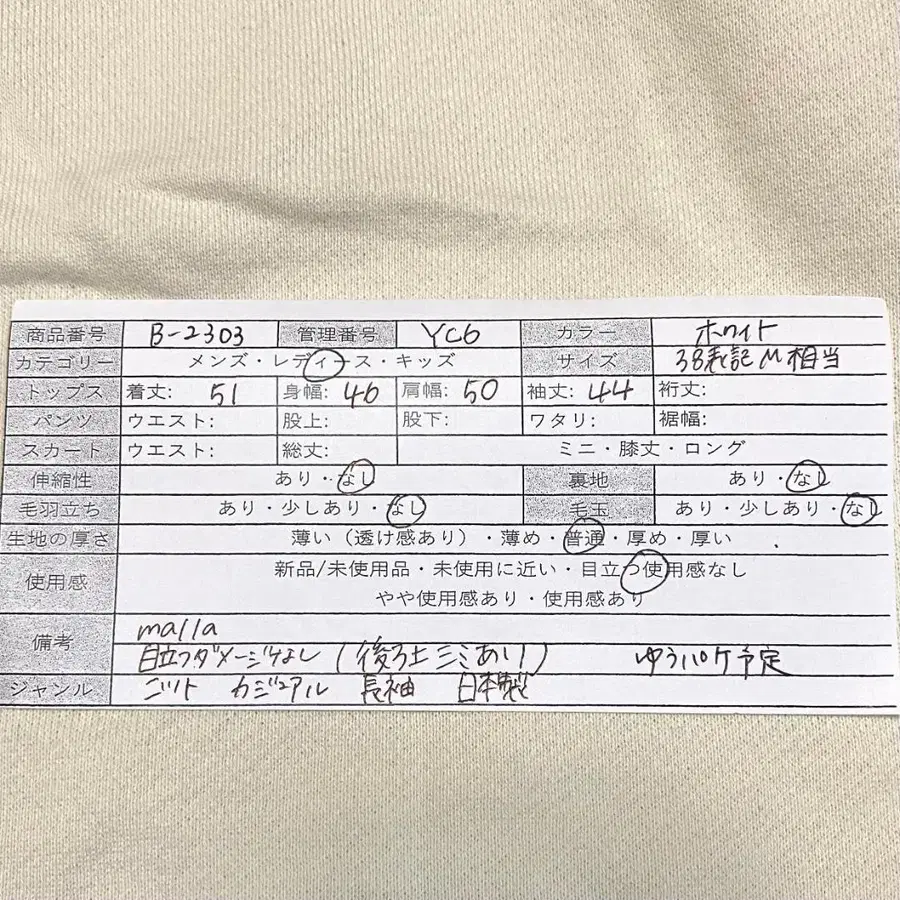 商品番号 B-2303 管理番号 YC6 カラー ホワイト
カテゴリー メンズ・レディース・キッズ サイズ 38表記M相当
トップス 着丈: 51 身幅: 46 肩幅: 50 袖丈: 44 裄丈:
パンツ ウエスト: 股上: 股下: ワタリ: 裾幅:
スカート ウエスト: 総丈: ミニ・膝丈・ロング
伸縮性 あり・なし 裏地 あり・なし
毛羽立ち あり・少しあり・なし 毛玉 あり・少しあり・なし
生地の厚さ 薄い（透け感あり）・薄め・普通・厚め・厚い
使用感 新品/未使用品・未使用に近い・目立つ使用感なし
やや使用感あり・使用感あり
備考 malla
目立つダメージなし (後ろ上シミあり) ゆうパケ予定
ジャンル ニット カジュアル 長袖 日本製